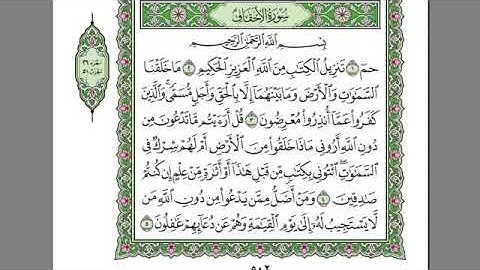 سُورَةُ الأَحْقَافِ
بِسْمِ اللَّهِ الرَّحْمَٰنِ الرَّحِيمِ
حمٓ ١ تَنزِيلُ الْكِتَابِ مِنَ اللَّهِ الْعَزِيزِ الْحَكِيمِ ٢ مَا خَلَقْنَا
السَّمَاوَاتِ وَالْأَرْضَ وَمَا بَيْنَهُمَا إِلَّا بِالْحَقِّ وَأَجَلٍ مُّسَمًّى وَالَّذِينَ
كَفَرُوا عَمَّا أُنذِرُوا مُعْرِضُونَ ٣ قُلْ أَرَءَيْتُم مَّا تَدْعُونَ مِن
دُونِ اللَّهِ أَرُونِي مَاذَا خَلَقُوا مِنَ الْأَرْضِ أَمْ لَهُمْ شِرْكٌ فِي
السَّمَاوَاتِ ائْتُونِي بِكِتَابٍ مِّن قَبْلِ هَٰذَا أَوْ أَثَارَةٍ مِّنْ عِلْمٍ إِن كُنتُمْ
صَادِقِينَ ٤ وَمَنْ أَضَلُّ مِمَّن يَدْعُوا مِن دُونِ اللَّهِ مَن
لَّا يَسْتَجِيبُ لَهُ إِلَىٰ يَوْمِ الْقِيَامَةِ وَهُمْ عَن دُعَائِهِمْ غَافِلُونَ ٥
٥٠٢